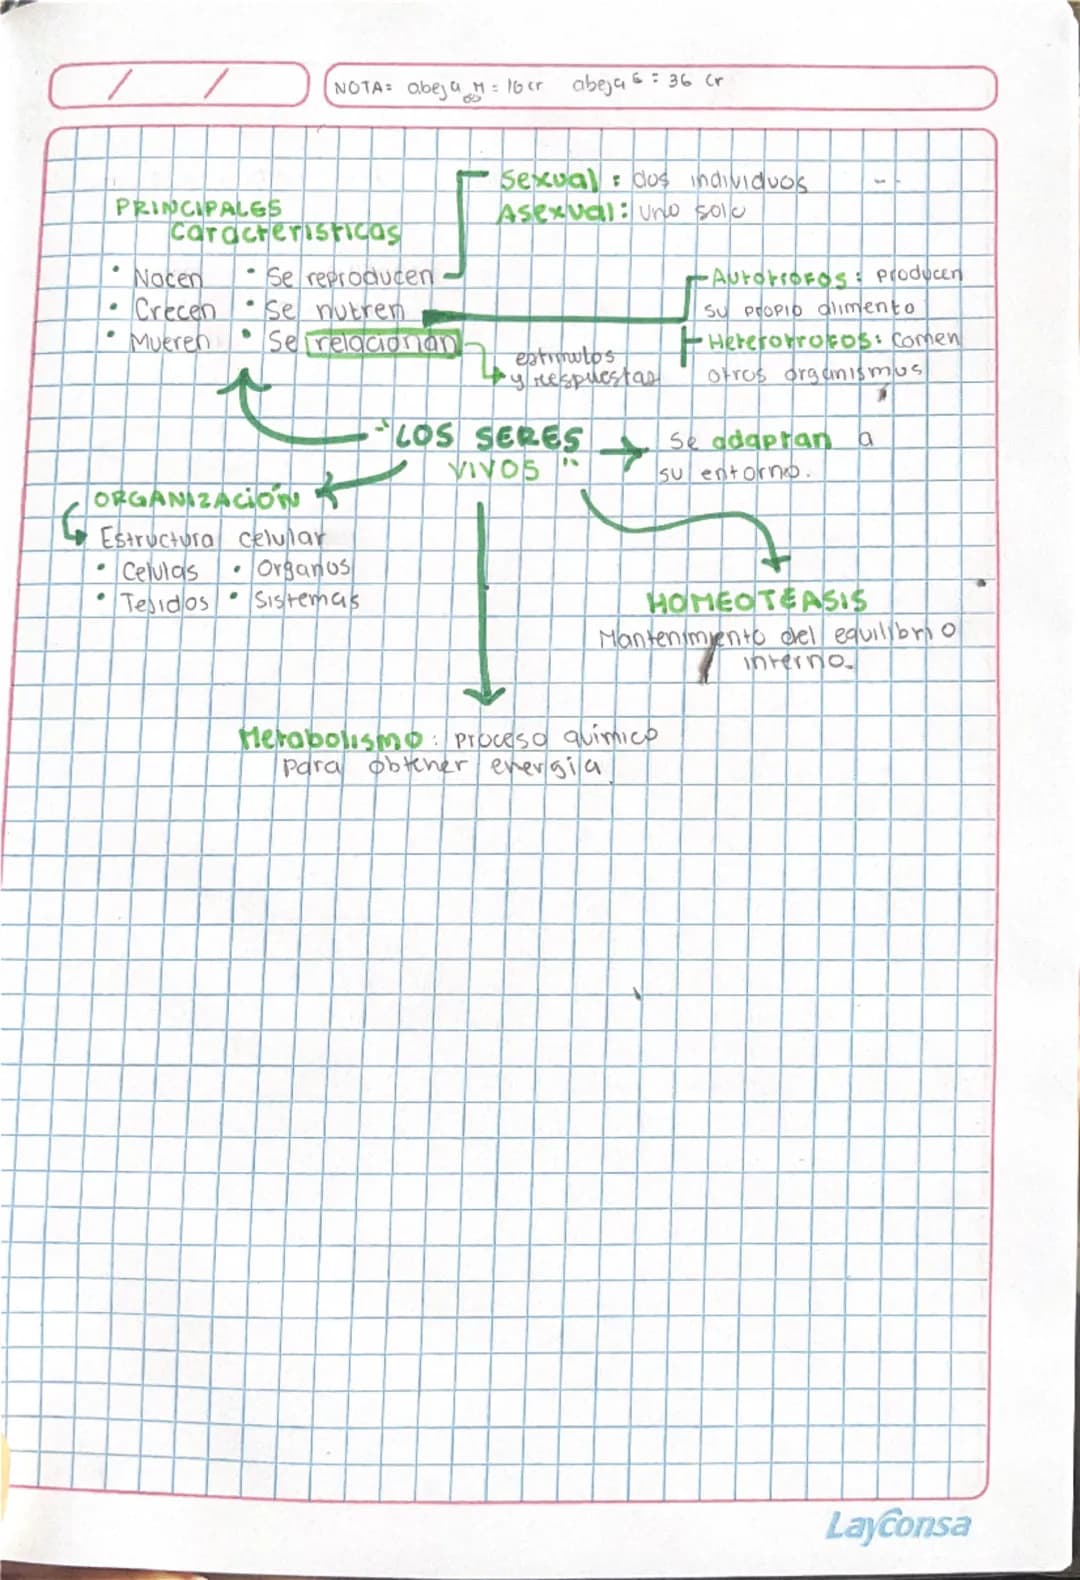 NOTA= abeja M = 16 cr abeja G = 36 cr
Sexual : dos individuos
Asexual: uno solo
PRINCIPALES
características
• Nacen • Se reproducen
• Crecen • Se nutren
• Mueren • Se relacionan
Autotrofos: producen
su propio alimento
Heterotrofos: comen
otros organismos
estimulos
y respuestas
"LOS SERES
VIVOS"
Se adaptan a
su entorno.
ORGANIZACIÓN
Estructura celular
• Celulas • Organos
• Tejidos • Sistemas
HOMEOTEASIS
Mantenimiento del equilibrio
interno.
Metabolismo: proceso químico
para obtener energia
Layconsa